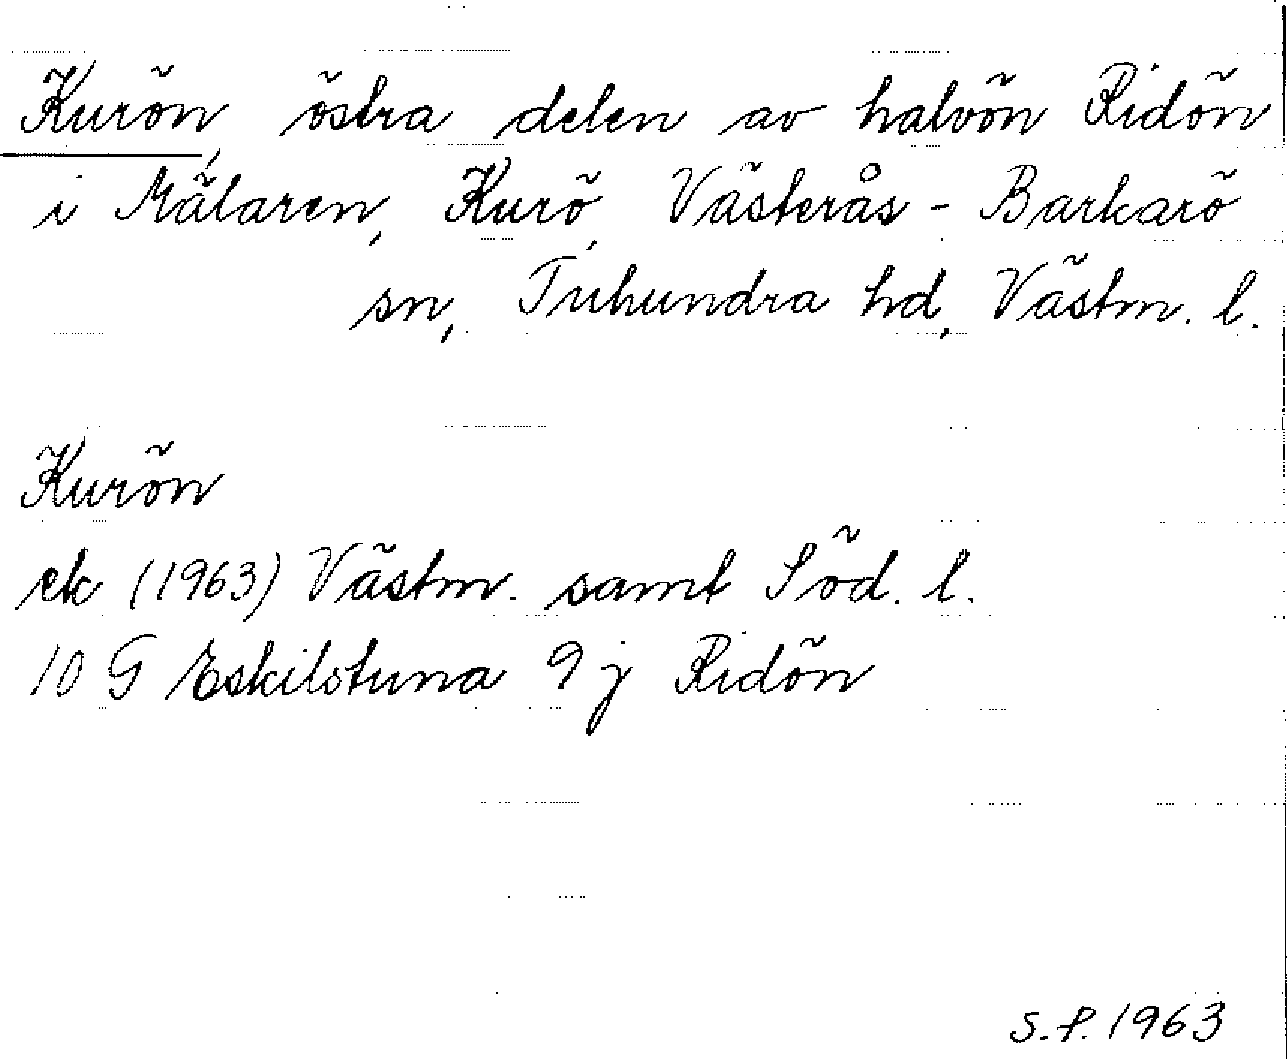 Kurön, östra delen av halvön Ridön
i Mälaren, Kurö, Västerås - Barkarö
sn, Tuhundra hd, Västm. l.
Kurön
ek (1963) Västm. samt Söd. l.
10 G Eskilstuna 9 j Ridön
S.P. 1963